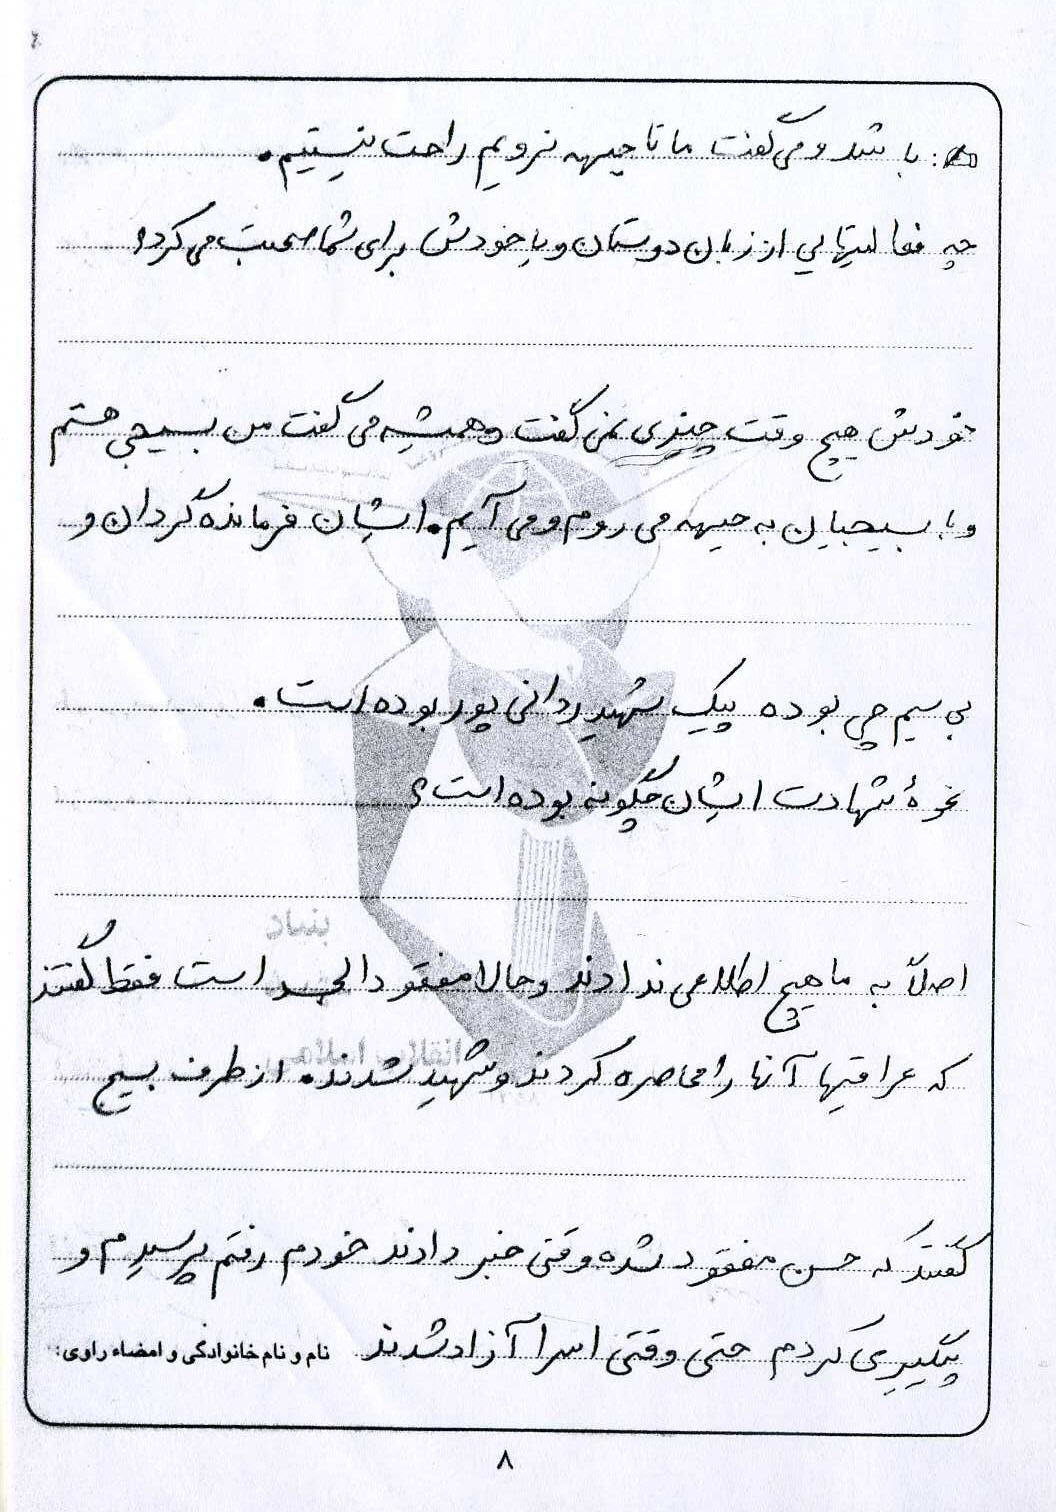 باشد و می گفت ما تا جبهه نرویم راحت نیستیم.
چه فعالیتهایی از زبان دوستان و یا خودش برای شما صحبت می کرد؟
خودش هیچ وقت چیزی نمی گفت و همیشه می گفت من بسیجی هستم
و با بسیجیان به جبهه می روم و می آیم. ایشان فرمانده گردان و
بی سیم چی بوده پیک شهید ردانی پور بوده است.
نحوۀ شهادت ایشان چگونه بوده است؟
بنیاد
اصلاً به ما هیچ اطلاعی ندادند و حالا مفقود الجسد است فقط گفتند
انقلاب اسلامی
که عراقیها آنها را محاصره کردند و شهید شدند. از طرف بسیج
گفتند که حسن مفقود شده وقتی خبر دادند خودم رفتم پرسیدم و
پیگیری کردم حتی وقتی اسرا آزاد شدند نام و نام خانوادگی و امضاء راوی:
۸